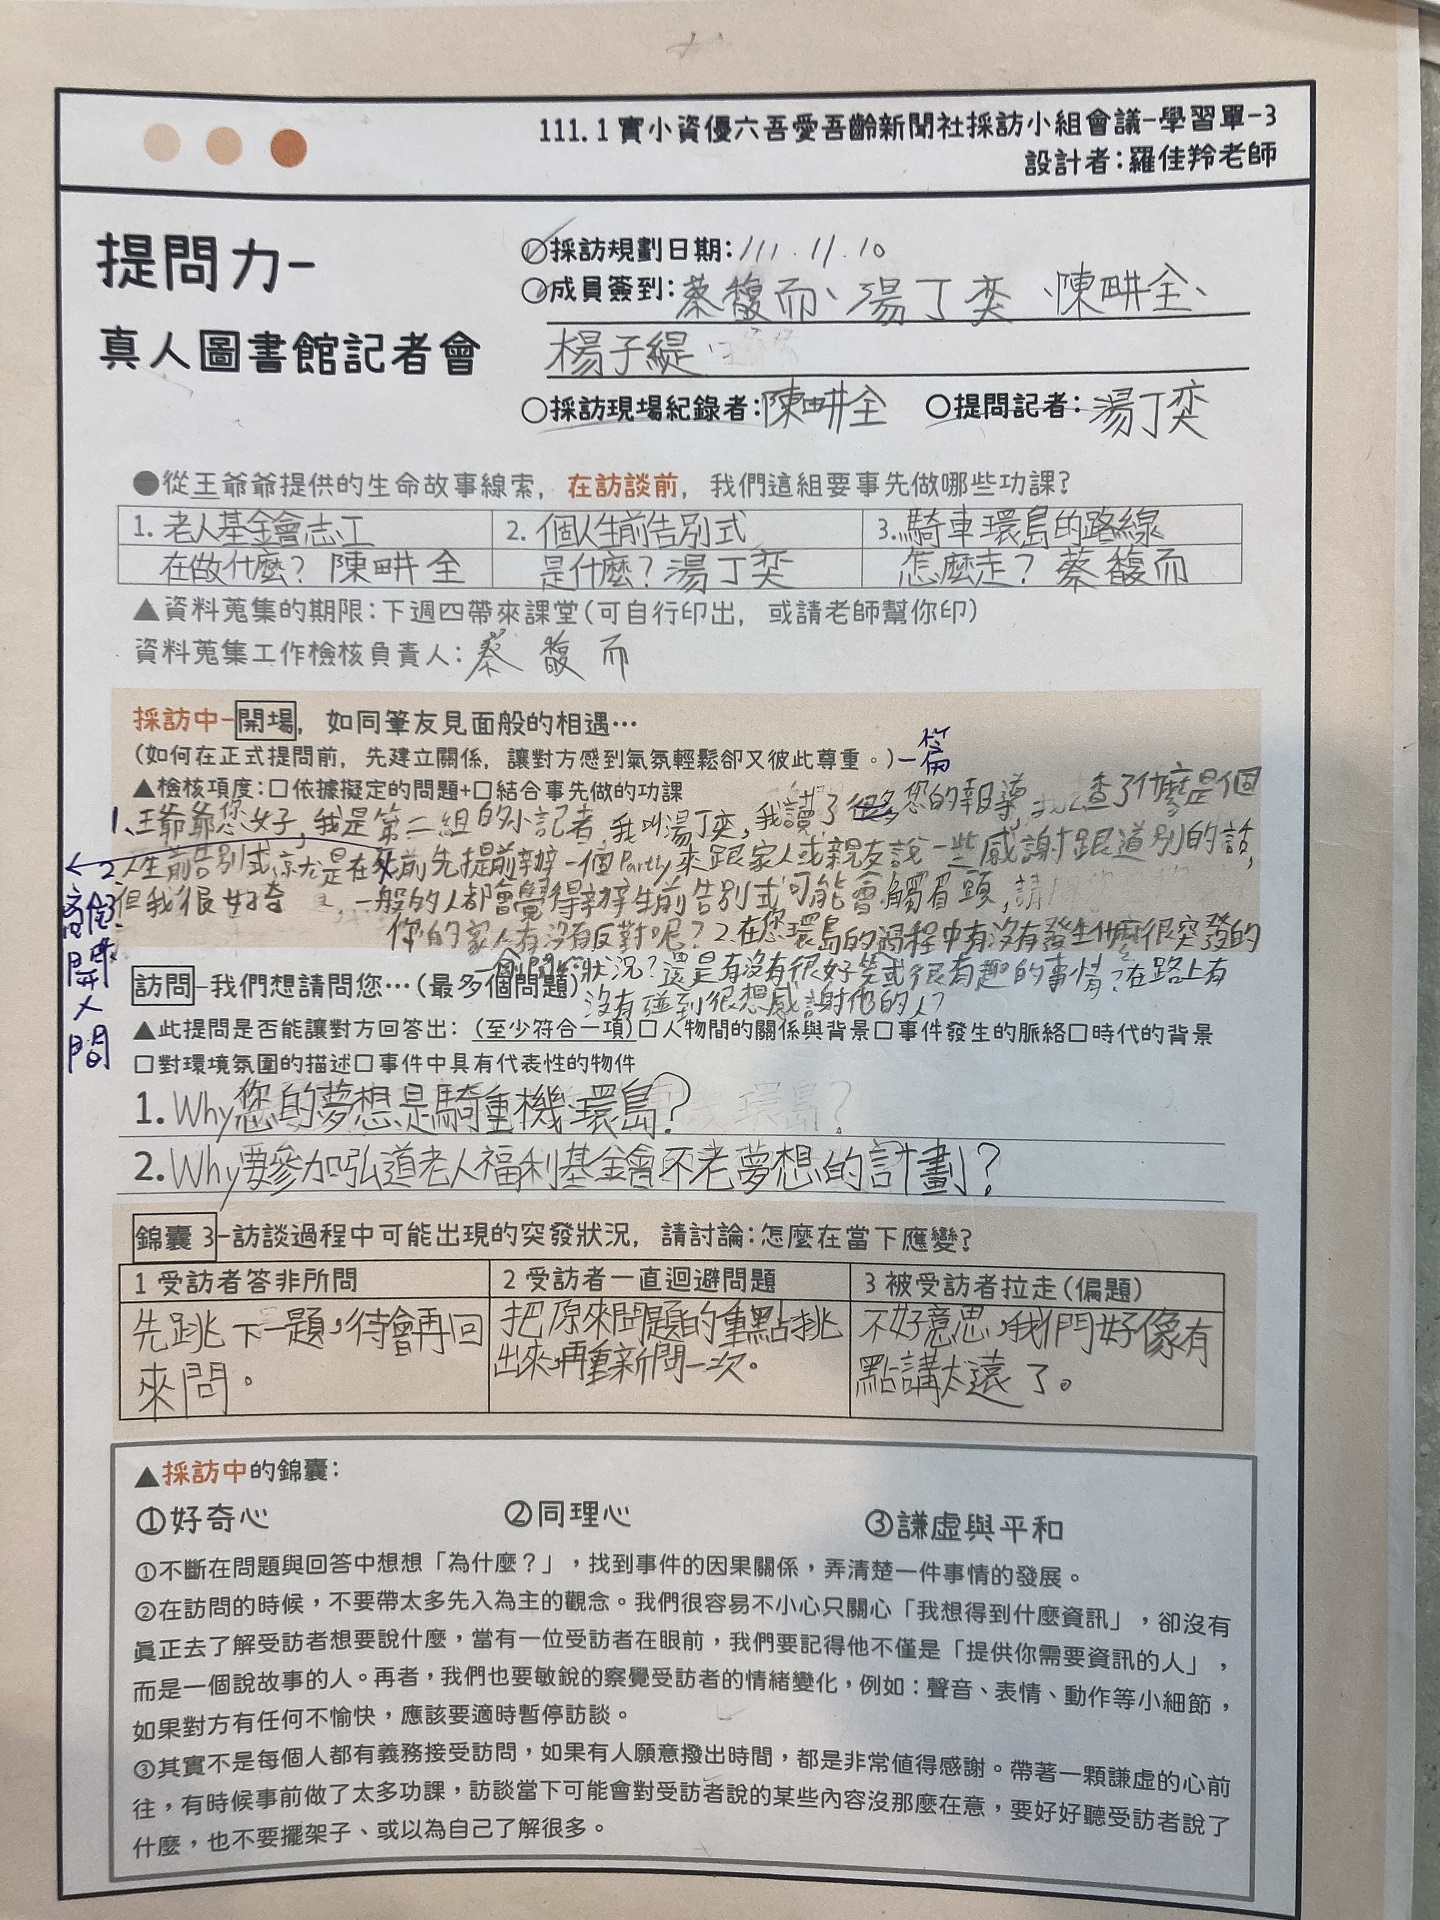 111.1實小資優六吾愛吾齡新聞社採訪小組會議-學習單-3
設計者:羅佳羚老師
提問力-
真人圖書館記者會
○採訪規劃日期:111.11.10
○成員簽到:蔡馥而、湯丁奕、陳畊全、
楊子緹
○採訪現場紀錄者:陳畊全 ○提問記者:湯丁奕
●從王爺爺提供的生命故事線索,在訪談前,我們這組要事先做哪些功課?
1.老人基金會志工 2.個人生前告別式 3.騎車環島的路線
在做什麼?陳畊全 是什麼?湯丁奕 怎麼走?蔡馥而
▲資料蒐集的期限:下週四帶來課堂(可自行印出,或請老師幫你印)
資料蒐集工作檢核負責人:蔡馥而
採訪中-開場,如同筆友見面般的相遇…
(如何在正式提問前,先建立關係,讓對方感到氣氛輕鬆卻又彼此尊重。)一篇
▲檢核項度:□依據擬定的問題+□結合事先做的功課
1、王爺爺您好,我是第二組的小記者,我叫湯丁奕,我讀了很多您的報導,查了什麼是個
人生前告別式,就是在死前先提前辦一個Party來跟家人或親友說一些感謝跟道別的話,
但我很好奇,一般的人都會覺得辦生前告別式可能會觸眉頭,請
你的家人有沒有反對呢?2.在您環島的過程中有沒有發生什麼很突發的
狀況?還是有沒有很好笑或很有趣的事情?在路上有
沒有碰到很想感謝他的人?
訪問-我們想請問您…(最多個問題)
▲此提問是否能讓對方回答出:(至少符合一項)□人物間的關係與背景□事件發生的脈絡□時代的背景
□對環境氛圍的描述□事件中具有代表性的物件
1.Why您的夢想是騎重機環島?
2.Why要參加弘道老人福利基金會不老夢想的計劃?
錦囊3-訪談過程中可能出現的突發狀況,請討論:怎麼在當下應變?
1受訪者答非所問 2受訪者一直迴避問題 3被受訪者拉走(偏題)
先跳下一題,待會再回 把原來問題的重點挑 不好意思,我們好像有
來問。 出來,再重新問一次。 點講太遠了。
▲採訪中的錦囊:
①好奇心 ②同理心 ③謙虛與平和
①不斷在問題與回答中想想「為什麼?」,找到事件的因果關係,弄清楚一件事情的發展。
②在訪問的時候,不要帶太多先入為主的觀念。我們很容易不小心只關心「我想得到什麼資訊」,卻沒有
真正去了解受訪者想要說什麼,當有一位受訪者在眼前,我們要記得他不僅是「提供你需要資訊的人」,
而是一個說故事的人。再者,我們也要敏銳的察覺受訪者的情緒變化,例如:聲音、表情、動作等小細節,
如果對方有任何不愉快,應該要適時暫停訪談。
③其實不是每個人都有義務接受訪問,如果有人願意撥出時間,都是非常值得感謝。帶著一顆謙虛的心前
往,有時候事前做了太多功課,訪談當下可能會對受訪者說的某些內容沒那麼在意,要好好聽受訪者說了
什麼,也不要擺架子、或以為自己了解很多。